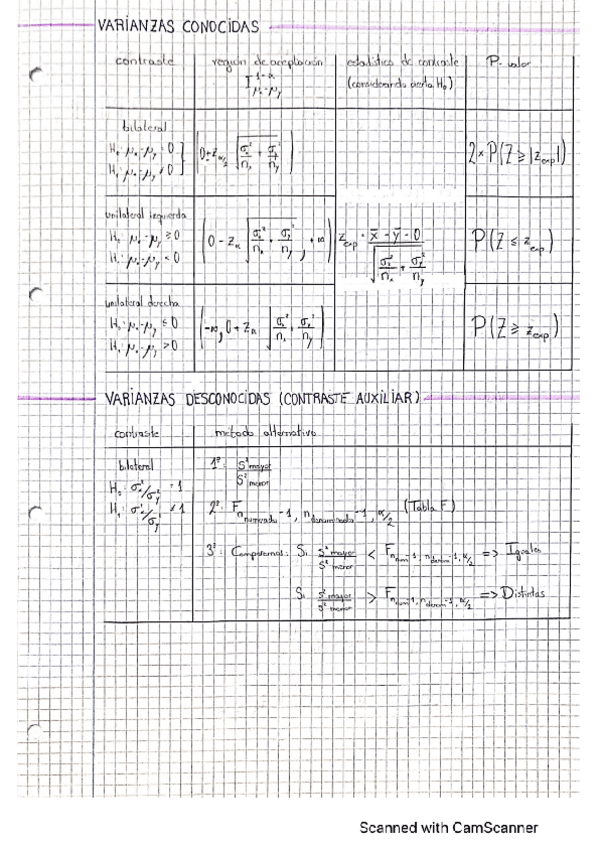 VARIANZAS CONOCIDAS
contraste
región de aceptación
I^{1-α}_{μx-μy}
estadístico de contraste
(considerando cierta H₀)
P-valor
bilateral
H₀: μx-μy = 0
H₁: μx-μy ≠ 0
(0 ± z_{α/2} √(σx²/nx + σy²/ny))
2·P(Z ≥ |z_exp|)
unilateral izquierda
H₀: μx-μy ≥ 0
H₁: μx-μy < 0
(0 - z_α √(σx²/nx + σy²/ny), +∞)
z_exp = (x̄ - ȳ - 0) / √(σx²/nx + σy²/ny)
P(Z ≤ z_exp)
unilateral derecha
H₀: μx-μy ≤ 0
H₁: μx-μy > 0
(-∞, 0 + z_α √(σx²/nx + σy²/ny))
P(Z ≥ z_exp)
VARIANZAS DESCONOCIDAS (CONTRASTE AUXILIAR)
contraste
método alternativo
bilateral
H₀: σx²/σy² = 1
H₁: σx²/σy² ≠ 1
1º: S² mayor / S² menor
2º: F_{n numerador -1, n denominador -1, α/2} (Tabla F)
3º: Comparamos: Si S² mayor / S² menor < F_{n num -1, n denom -1, α/2} => Iguales
Si S² mayor / S² menor > F_{n num -1, n denom -1, α/2} => Distintas
Scanned with CamScanner